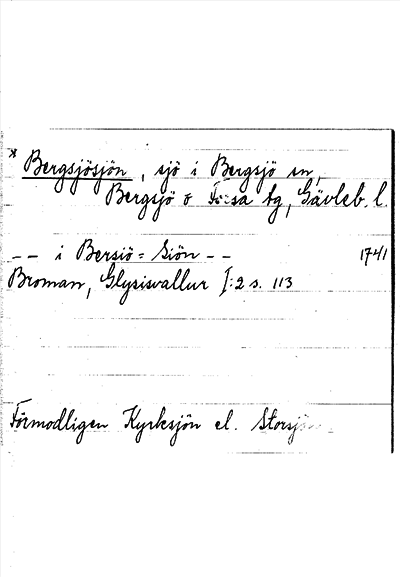 * Bergsjösjön, sjö i Bergsjö sn,
Bergsjö o Forsa tg, Gävleb. l.
-- i Bersiö=Siön -- 1741
Broman, Glysisvallur I:2 s. 113
Förmodligen Kyrksjön el. Storsjön